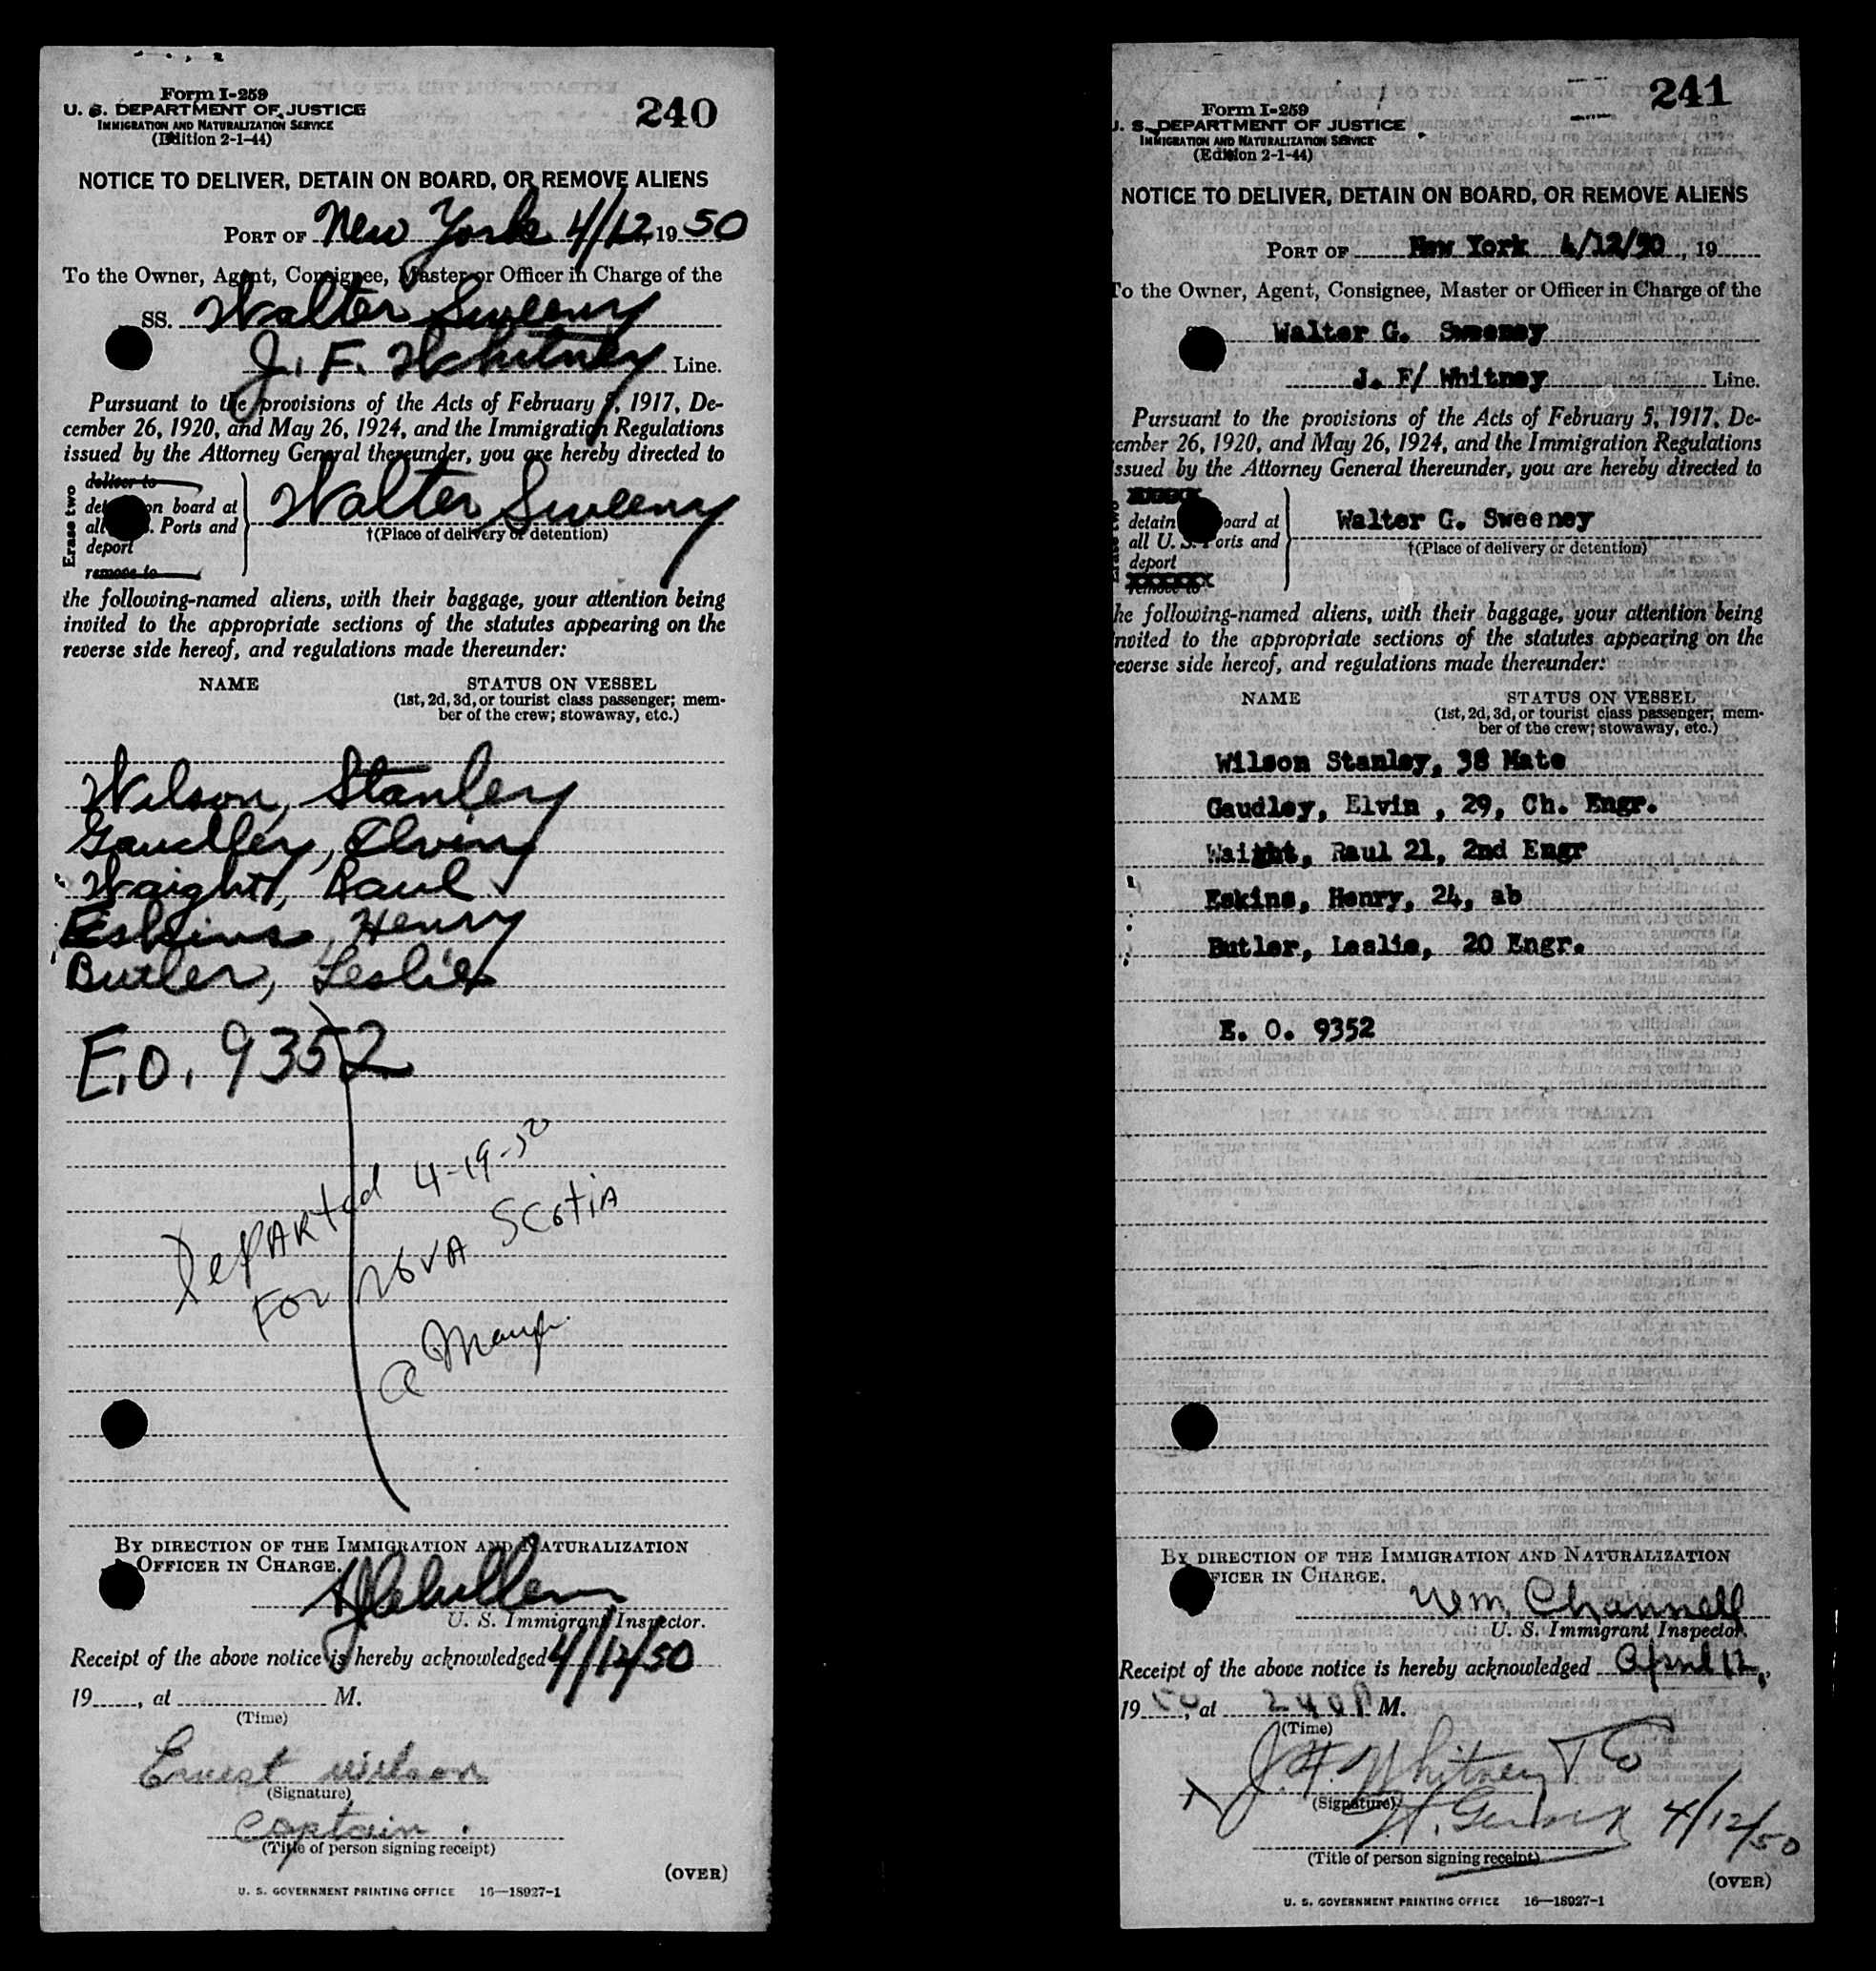 Form I-259
U. S. DEPARTMENT OF JUSTICE
IMMIGRATION AND NATURALIZATION SERVICE
(Edition 2-1-44)
240
NOTICE TO DELIVER, DETAIN ON BOARD, OR REMOVE ALIENS
PORT OF New York 4/12, 19 50
To the Owner, Agent, Consignee, Master or Officer in Charge of the
SS. Walter Sweeny
J. F. Whitney Line.
Pursuant to the provisions of the Acts of February 5, 1917, De-
cember 26, 1920, and May 26, 1924, and the Immigration Regulations
issued by the Attorney General thereunder, you are hereby directed to
Erase two
deliver to
on board at
Ports and
deport
remove to
Walter Sweeny
†(Place of delivery or detention)
the following-named aliens, with their baggage, your attention being
invited to the appropriate sections of the statutes appearing on the
reverse side hereof, and regulations made thereunder:
NAME STATUS ON VESSEL
(1st, 2d, 3d, or tourist class passenger; mem-
ber of the crew; stowaway, etc.)
Wilson, Stanley
Gaudley, Elvin
Waight, Raul
Eskins, Henry
Butler, Leslie
E.O. 9352
Departed 4-19-50
For Nova Scotia
BY DIRECTION OF THE IMMIGRATION AND NATURALIZATION
OFFICER IN CHARGE.
U. S. Immigrant Inspector.
Receipt of the above notice is hereby acknowledged 4/12/50
19....., at ............... M.
(Time)
Ernest Wilson
(Signature)
Captain.
(Title of person signing receipt)
(OVER)
U. S. GOVERNMENT PRINTING OFFICE 16—18927-1
241
Form I-259
U. S. DEPARTMENT OF JUSTICE
IMMIGRATION AND NATURALIZATION SERVICE
(Edition 2-1-44)
NOTICE TO DELIVER, DETAIN ON BOARD, OR REMOVE ALIENS
PORT OF New York 4/12/50, 19
To the Owner, Agent, Consignee, Master or Officer in Charge of the
Walter G. Sweeney
J. F/ Whitney Line.
Pursuant to the provisions of the Acts of February 5, 1917, De-
cember 26, 1920, and May 26, 1924, and the Immigration Regulations
issued by the Attorney General thereunder, you are hereby directed to
detain oard at
all U. S. Ports and
deport
remove to
Walter G. Sweeney
†(Place of delivery or detention)
he following-named aliens, with their baggage, your attention being
nvited to the appropriate sections of the statutes appearing on the
everse side hereof, and regulations made thereunder:
NAME STATUS ON VESSEL
(1st, 2d, 3d, or tourist class passenger; mem-
ber of the crew; stowaway, etc.)
Wilson Stanley, 38 Mate
Gaudley, Elvin , 29, Ch. Engr.
Waight, Raul 21, 2nd Engr
Eskins, Henry, 24, ab
Butler, Leslie, 20 Engr.
E. O. 9352
BY DIRECTION OF THE IMMIGRATION AND NATURALIZATION
FICER IN CHARGE.
Wm. Channell
U. S. Immigrant Inspector.
Receipt of the above notice is hereby acknowledged April 12,
19 50, at 240 P M.
(Time)
J. F. Whitney & Co
(Signature)
4/12/50
(Title of person signing receipt)
(OVER)
U. S. GOVERNMENT PRINTING OFFICE 16—18927-1